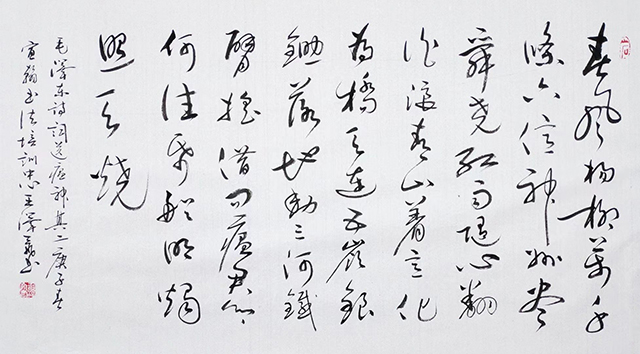 春风杨柳万千
條六億神州尽
舜尧红雨随心翻
作浪青山着意化
为橋天连五岭银
锄落地动三河鐵
臂摇借问瘟君欲
何往帋船明烛
照天烧
毛泽东诗词送瘟神其二庚子春
宣翰书法培训忠王泽书